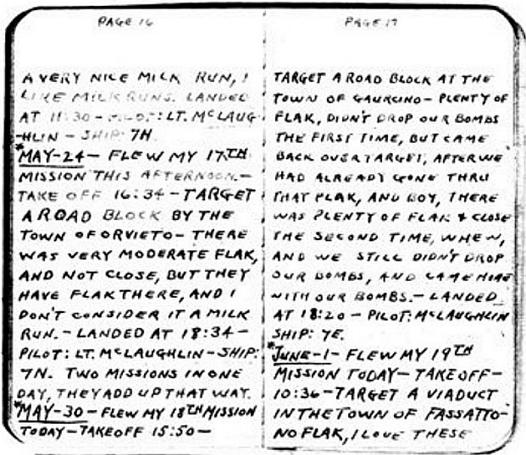 PAGE 16
A VERY NICE MILK RUN, I
LIKE MILK RUNS. LANDED
AT 11:30 - PILOT: LT. MCLAUG-
HLIN - SHIP: 7H.
*MAY-24 - FLEW MY 17TH
MISSION THIS AFTERNOON. -
TAKE OFF 16:34 - TARGET
A ROAD BLOCK BY THE
TOWN OF ORVIETO - THERE
WAS VERY MODERATE FLAK,
AND NOT CLOSE, BUT THEY
HAVE FLAK THERE, AND I
DON'T CONSIDER IT A MILK
RUN. - LANDED AT 18:34 -
PILOT: LT. MCLAUGHLIN - SHIP:
7N. TWO MISSIONS IN ONE
DAY, THEY ADD UP THAT WAY.
*MAY-30 - FLEW MY 18TH MISSION
TODAY - TAKEOFF 15:50 -
PAGE 17
TARGET A ROAD BLOCK AT THE
TOWN OF GAURCINO - PLENTY OF
FLAK, DIDN'T DROP OUR BOMBS
THE FIRST TIME, BUT CAME
BACK OVER TARGET, AFTER WE
HAD ALREADY GONE THRU
THAT FLAK, AND BOY, THERE
WAS PLENTY OF FLAK & CLOSE
THE SECOND TIME, WHEW,
AND WE STILL DIDN'T DROP
OUR BOMBS, AND CAME HOME
WITH OUR BOMBS. - LANDED
AT 18:20 - PILOT: MCLAUGHLIN
SHIP: 7E.
*JUNE-1 - FLEW MY 19TH
MISSION TODAY - TAKEOFF -
10:36 - TARGET A VIADUCT
IN THE TOWN OF FASSATTO -
NO FLAK, I LOVE THESE